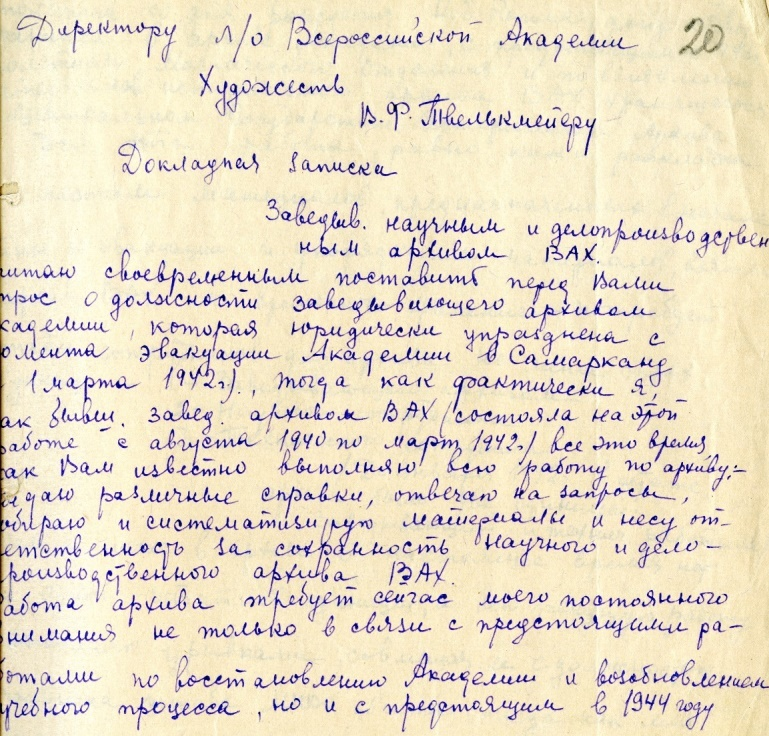 20
Директору л/о Всероссийской Академии
Художеств
В. Ф. Твелькмейеру
Докладная записка
Заведыв. научным и делопроизводствен
ным архивом ВАХ.
читаю своевременным поставить перед Вами
прос о должности заведывающего архивом
кадемии, которая юридически упразднена с
омента эвакуации Академии в Самарканд
1 марта 1942г.)., тогда как фактически я,
ак бывш. завед. архивом ВАХ (состояла на этой
работе с августа 1940 по март 1942г.) все это время
как Вам известно выполняю всю работу по архиву:-
даю различные справки, отвечаю на запросы,
обираю и систематизирую материалы и несу от-
етственность за сохранность научного и дело-
роизводственного архива ВАХ.
абота архива требует сейчас моего постоянного
нимания не только в связи с предстоящими ра-
отами по восстановлению Академии и возобновлением
учебного процесса, но и с предстоящим в 1944 году